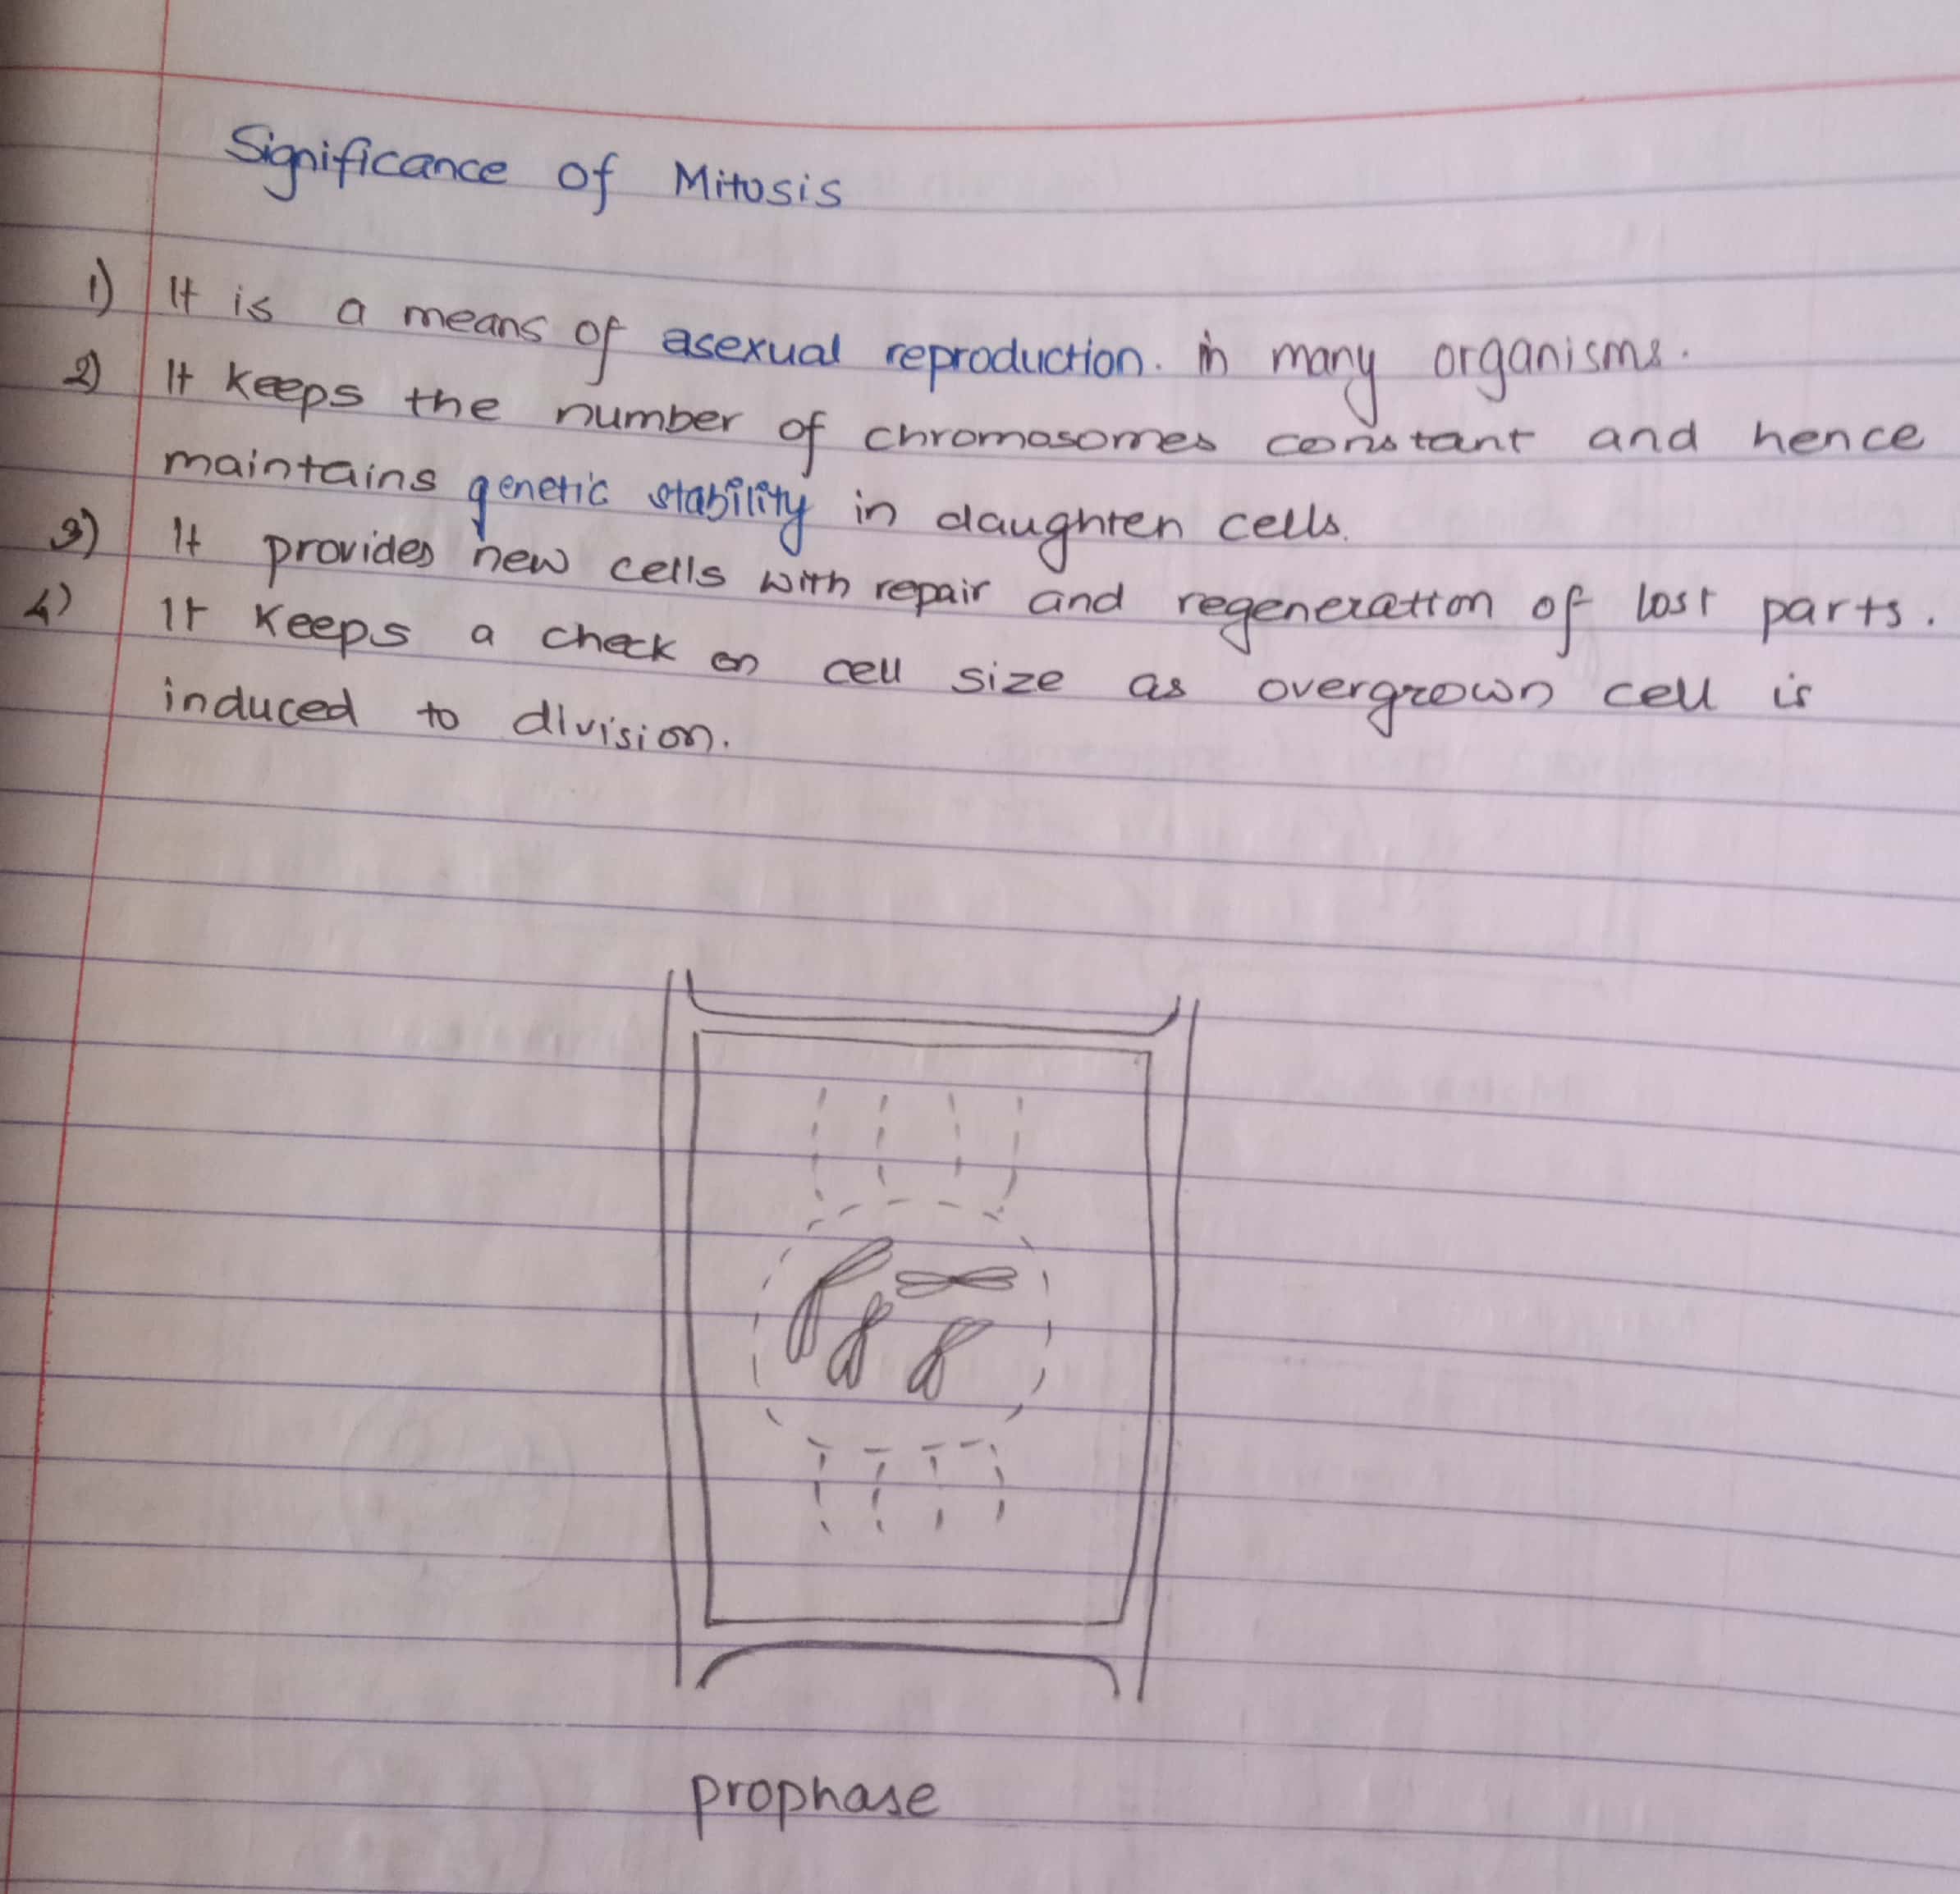 Significance of Mitosis
1) It is a means of asexual reproduction. in many organisms.
2) It keeps the number of chromosomes constant and hence
maintains genetic stability in daughter cells.
3) It provides new cells with repair and regeneration of lost parts.
4) It keeps a check on cell size as overgrown cell is
induced to division.
prophase